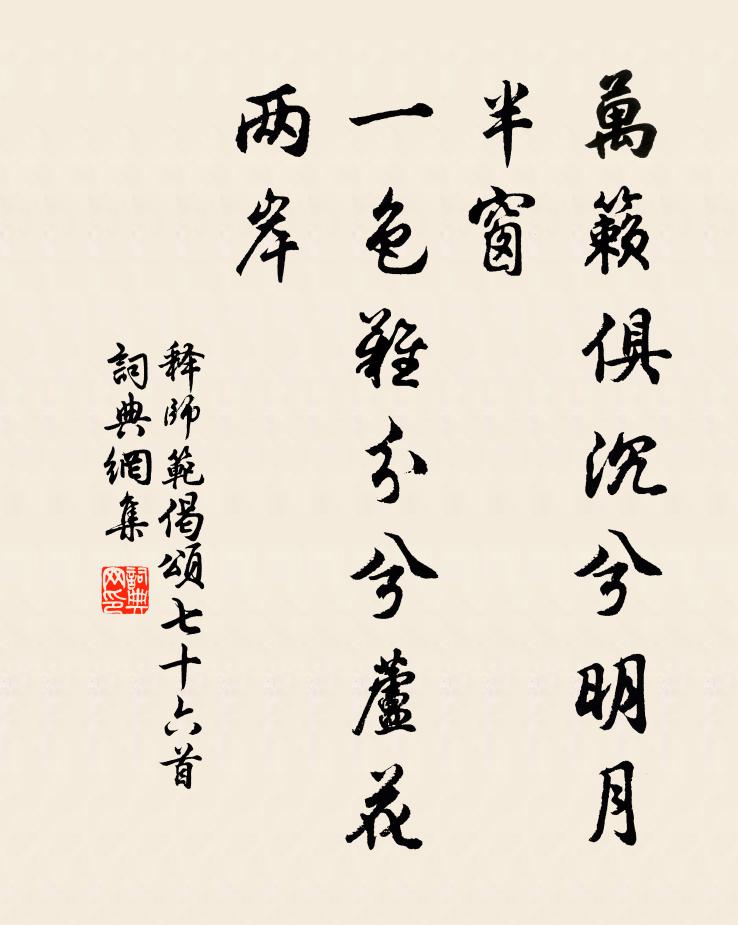 萬籟俱沉兮明月
半窗
一色難分兮蘆花
两岸
释師範偈頌七十六首
詞典網集
詞典
网印